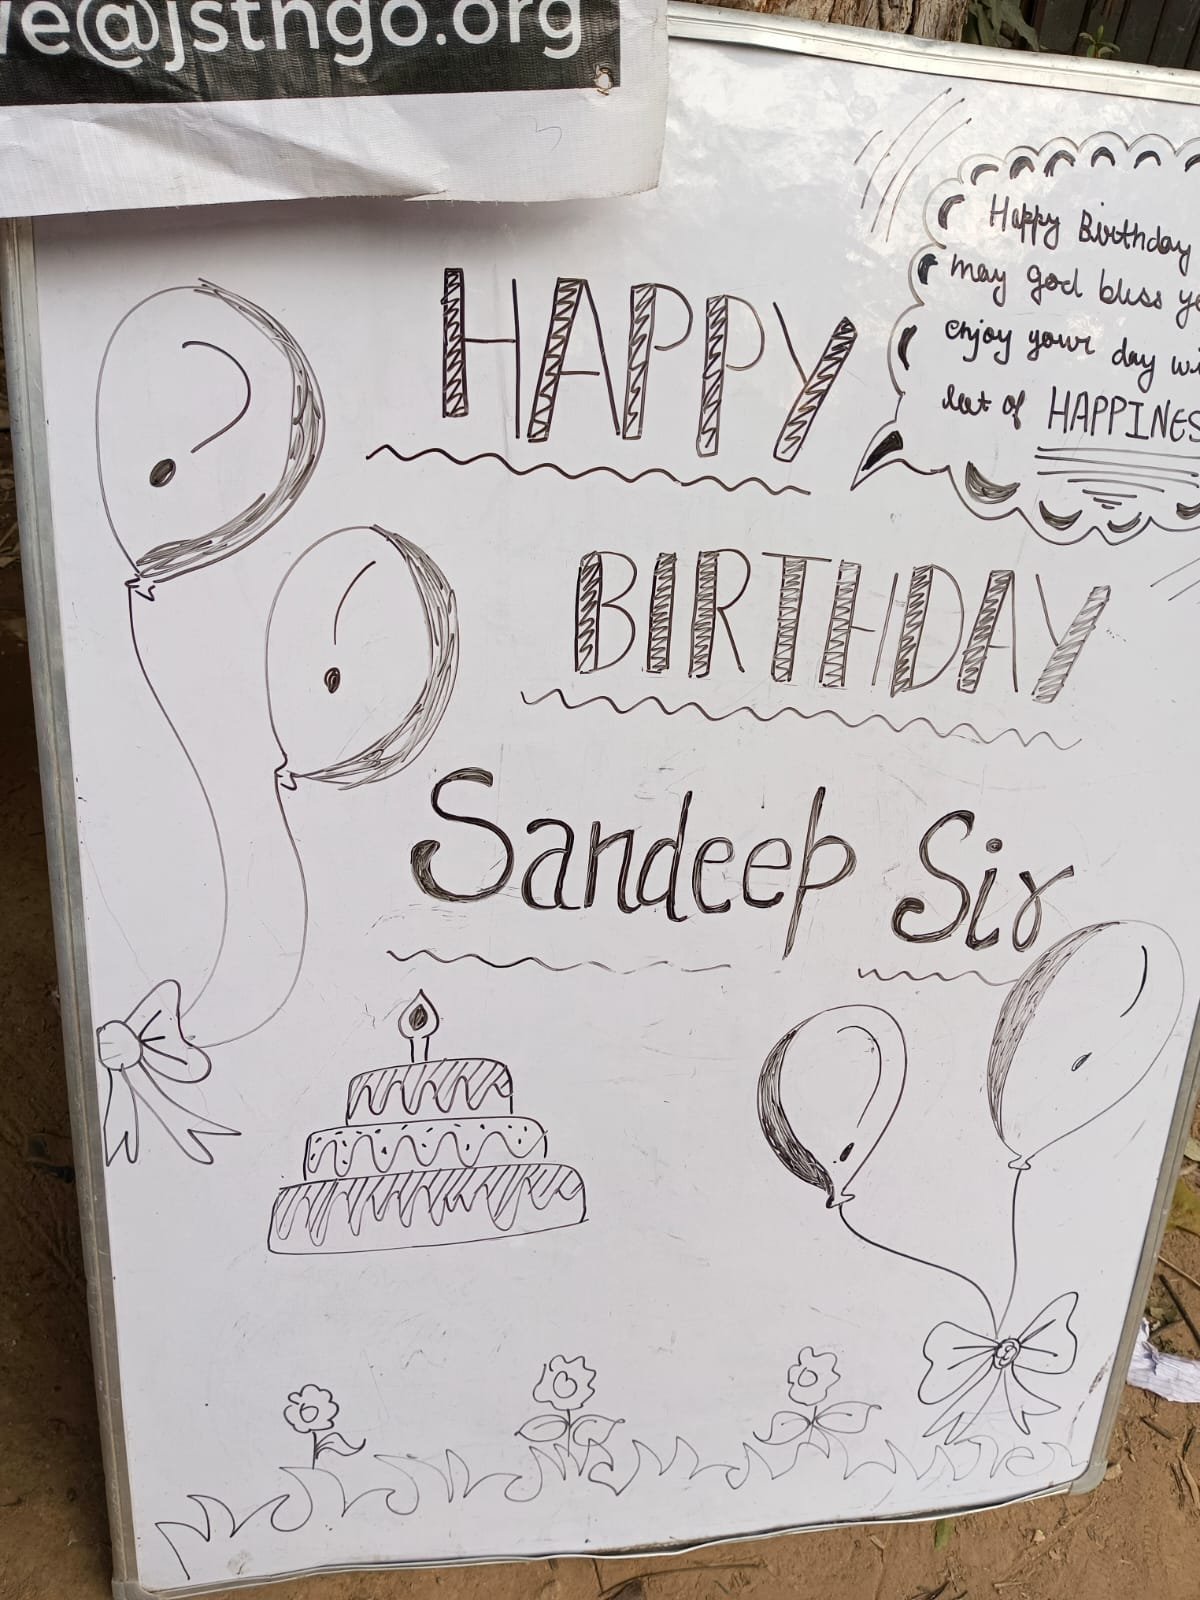 e@jstngo.org
HAPPY
BIRTHDAY
Sandeep Sir
Happy Birthday
may god bless
enjoy your day
lot of HAPPINES